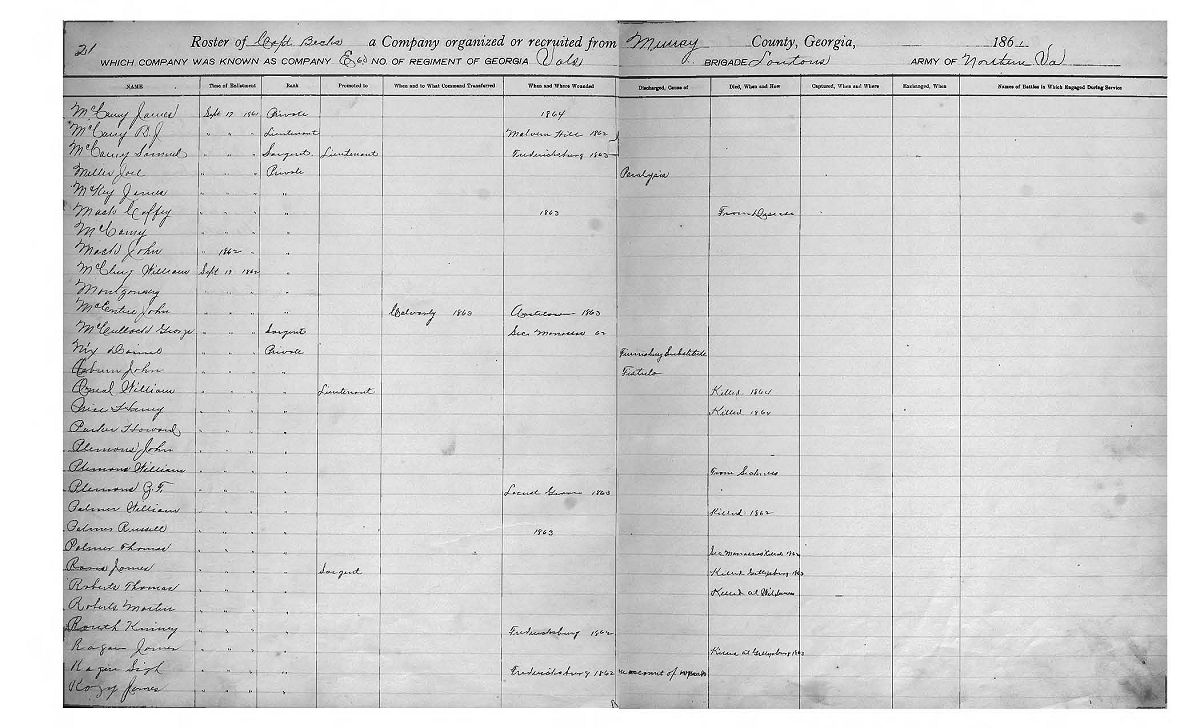 21 Roster of Capt Becks a Company organized or recruited from Murray County, Georgia, 1861.
WHICH COMPANY WAS KNOWN AS COMPANY E NO. OF REGIMENT OF GEORGIA Vols BRIGADE ARMY OF Northern Va
NAME Time of Enlistment Rank Promoted to When and to What Command Transferred When and Where Wounded Discharged, Cause of Died, When and How Captured, When and Where Exchanged, When Names of Battles in Which Engaged During Service
McCamy James Sept 17 1861 Private 1864
McCamy B J " " " Lieutenant Malvern Hill 1862
McCamy Samuel " " " Sargent Lieutenant Fredericksburg 1863
Miller Joel " " " Private Paralysis
McKey James " " " "
Mack Coffey " " " " 1863 From Disease
McCamy " " " "
Mack John " 1862 " "
William Sept 17 1862 "
Montgomery " " " "
McEntire John " " " " Calvary 1863 1863
McCulloch George " " " Sargent Sec Manassas 62
Nix " " " Private Furnishing Substitute
John " " " " Fistulo
William " " " " Lieutenant Killed 1864
" " " " Killed 1864
Parker Howard " " " "
Plemons John " " " "
Plemons William " " " " From Sickness
Plemons G.T. " " " " Locust Grove 1863
Palmer William " " " " Killed 1862
Palmer Russell " " " " 1863
Palmer Thomas " " " " Sec Manassas Killed 1862
James " " " " Sargent Killed Gettysburg 1863
Roberts Thomas " " " " Killed at Wilderness
Roberts Martin " " " "
" " " " Fredericksburg 1862
Ragan James " " " " Killed at Gettysburg 1863
" " " " Fredericksburg 1862 on account of wounds
James " " " "